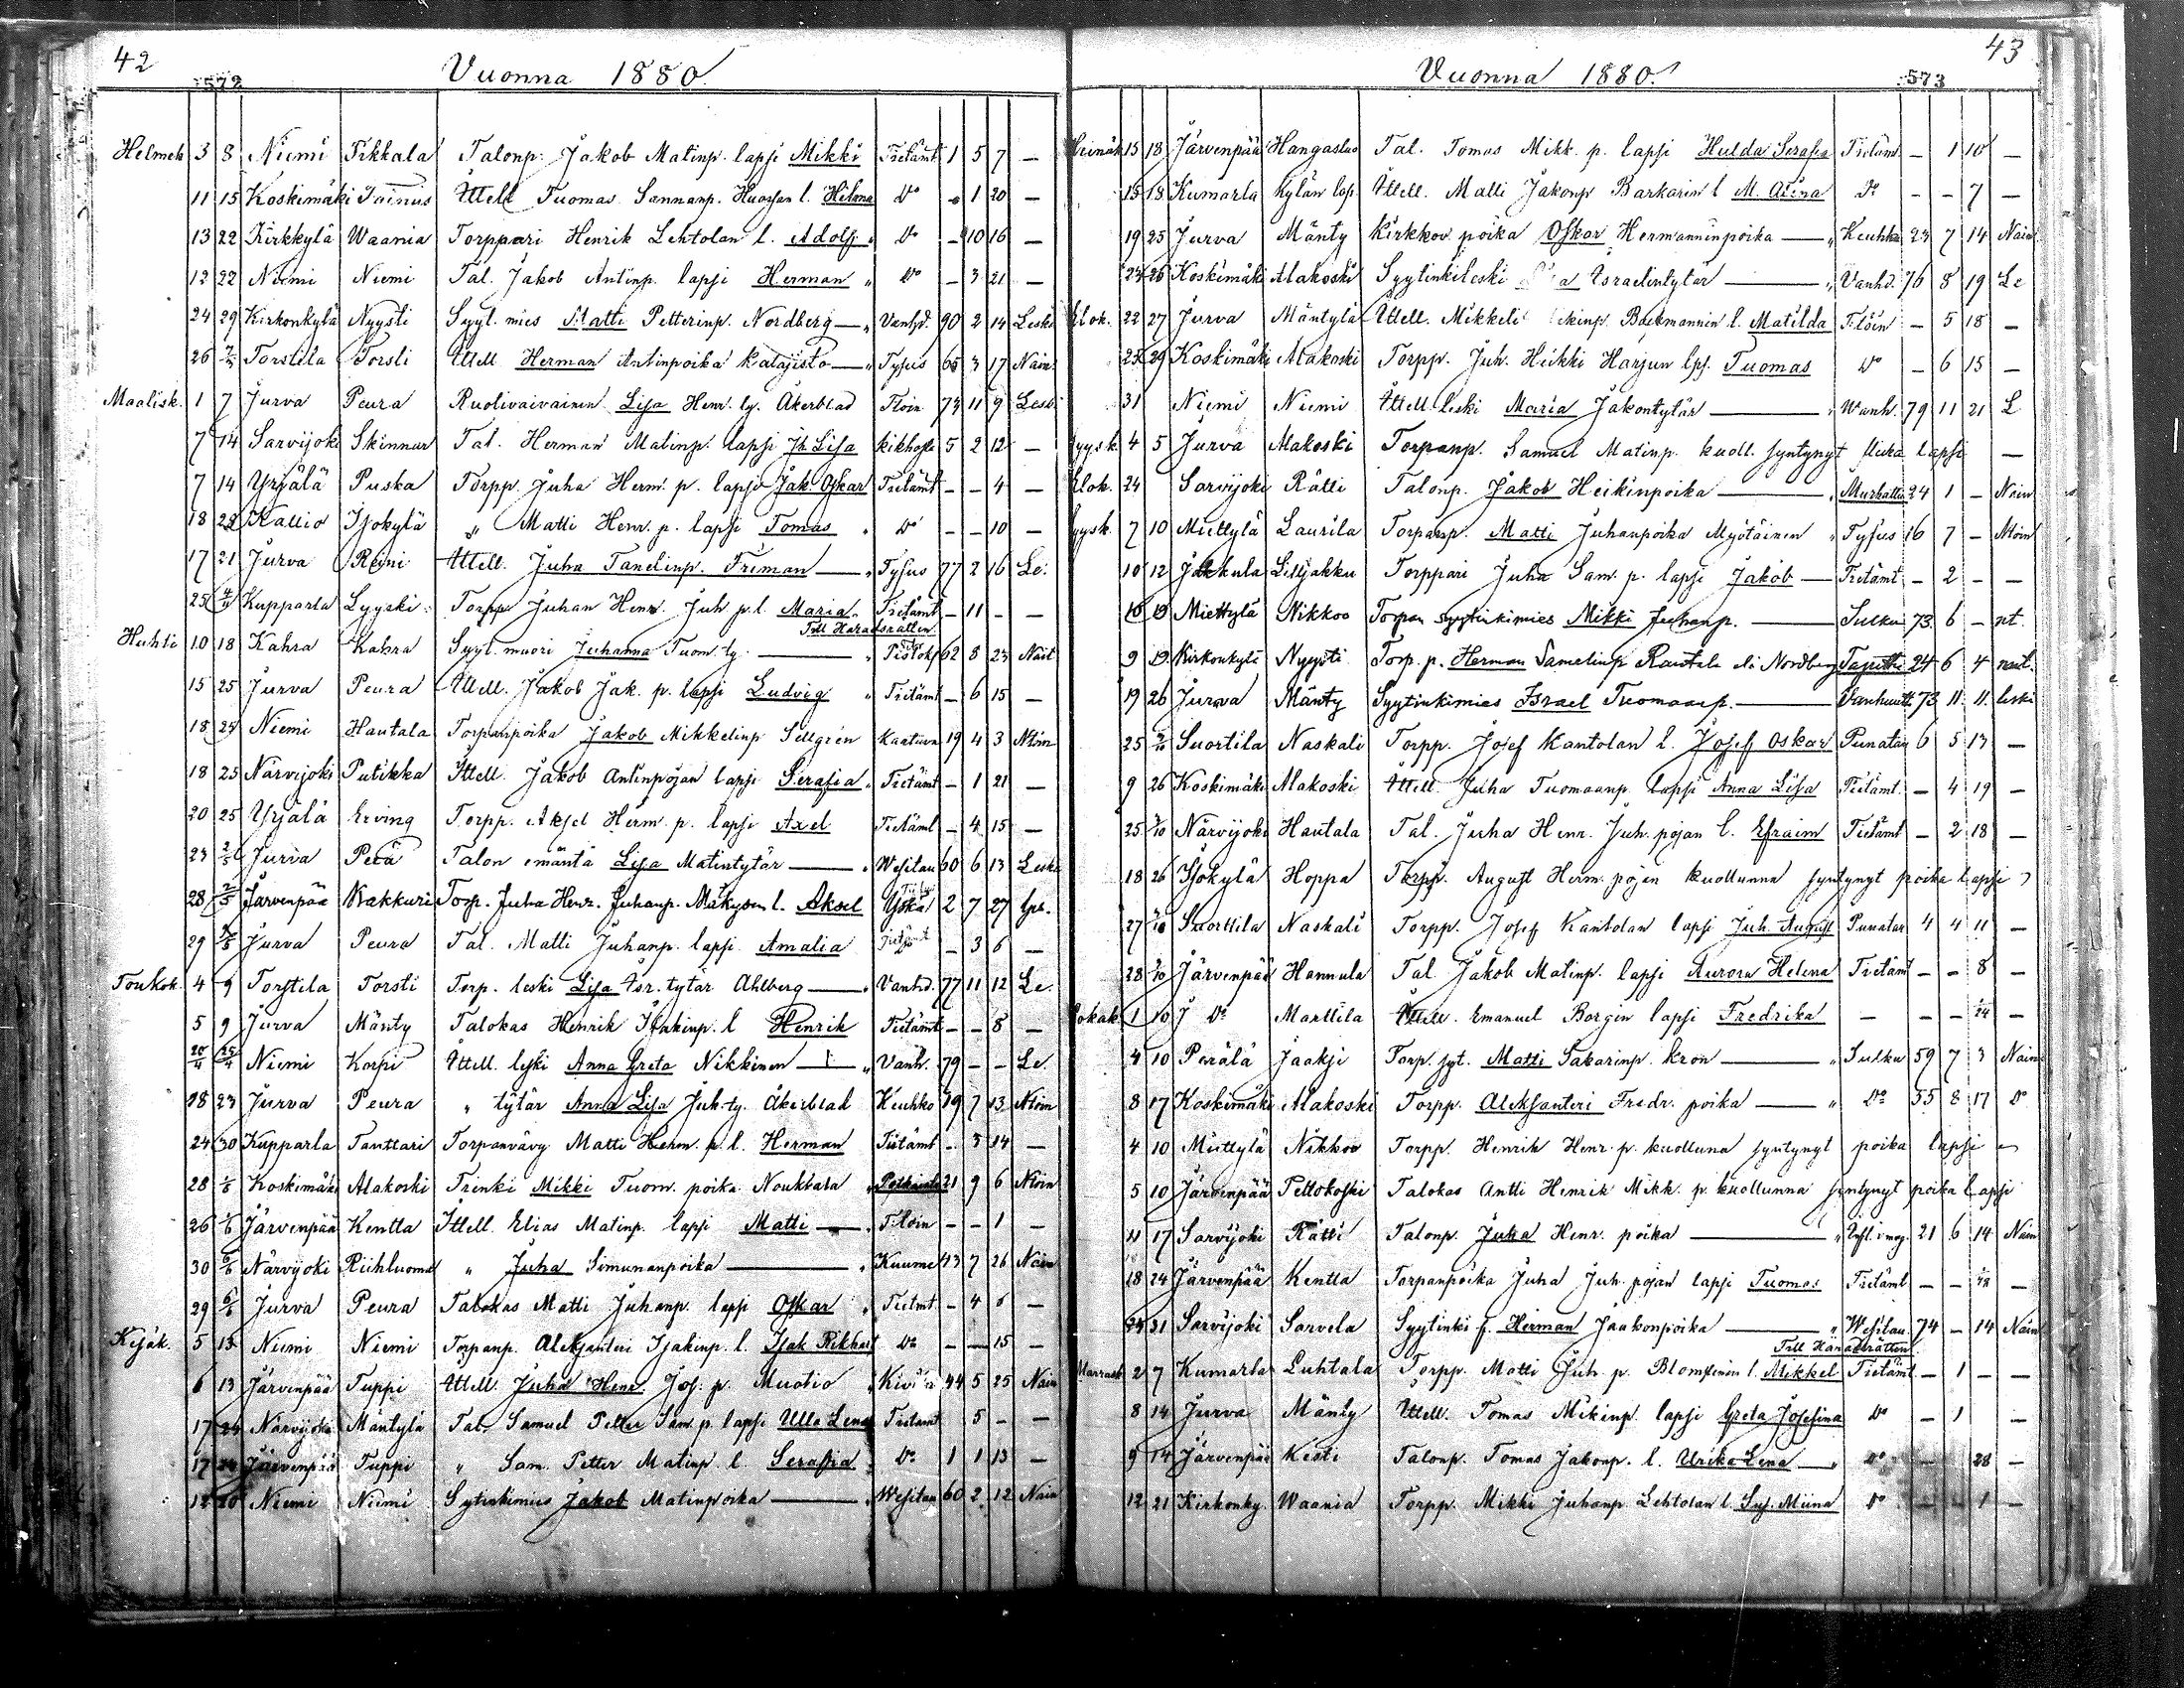 42
572
Vuonna 1880.
Helmik 3 8 Niemi Pikkala Talonp. Jakob Matinp. lapsi Mikki Tietämt 1 5 7 —
11 15 Koskimäki Ittell Tuomas Sannanp. l. Hilma Do - 1 20 —
13 22 Kirkkylä Waania Torppari Henrik Lehtolan l. Adolf Do - 10 16 —
12 22 Niemi Niemi Tal. Jakob Antinp. lapsi Herman " Do - 3 21 —
24 29 Kirkonkylä Nyysti Syyt. mies Matti Petterinp. Nordberg — " Vanhd. 90 2 14 Leski
26 Torstila Torsti Ittell Herman Antinpoika Katajisto — " Tyfus 65 3 17 Nain.
Maalisk. 1 7 Jurva Peura Ruotivaivainen Lisa Henr. ty. Åkerblad Tt̃oin 73 11 9 Leski
7 14 Sarvijoki Skinnar Tal. Herman Matinp. lapsi Jh. Lisa 5 2 12 —
7 14 Yrjälä Puska Torpp. Juha Herm. p. lapsi Jak. Oskar Tietämt - - 4 —
18 28 Kallio Isokylä " Matti Henr. p. lapsi Tomas " Do - - 10 —
17 21 Jurva Reini Ittell. Juha Tanelinp. Friman — " Tyfus 77 2 16 Le.
25 4/4 Kupparla Lyyski Torpp Juhan Henr. Juh p. l. Maria Tietämt - 11 - -
Till Häradsrätten
Huhti 10 18 Kahra Kahra Syyt. muori Juhanna Tuom. ty. — " 62 8 23 Nait
15 25 Jurva Peura Ittell. Jakob Jak. p. lapsi Ludvig " Tietämt - 6 15 —
18 25 Niemi Hautala Torpanpoika Jakob Mikkelinp Sillgrén Kaatuva 19 4 3 Ntoin
18 25 Närvijoki Putikka Ittell. Jakob Antinpojan lapsi Serafia " Tietämt - 1 21 —
20 25 Yrjälä Erving Torpp. Aksel Herm. p. lapsi Axel Tietämt - 4 15 —
23 2/5 Jurva Perä Talon emäntä Lisa Matintytär — " Wesitau 60 6 13 Leski
28 2/5 Järvenpää Wakkuri Torp. Juha Henr. Juhanp. Mäkysen l. Aksel Yskä 2 7 27 lps.
29 Jurva Peura Tal. Matti Juhanp. lapsi Amalia Tietämt - 3 6 —
Toukok. 4 9 Torstila Torsti Torp. leski Lisa Isr. tytär Ahlberg — " Vanhd. 77 11 12 Le.
5 9 Jurva Mänty Talokas Henrik Isakinp. l Henrik Tietämt - - 8 —
20/4 25/4 Niemi Korpi Ittell. leski Anna Greta Nikkinen — " Vanh. 79 - - Le.
18 23 Jurva Peura " tytär Anna Lisa Juh. ty. Åkerblad Keuhko 19 7 13 Ntoin
24 30 Kupparla Tanttari Torpanvävy Matti Herm. p. l. Herman Tietämt - 3 14 —
28 1/6 Koskimäki Alakoski Trenki Mikki Tuom. poika 21 9 6 Ntoin
26 1/6 Järvenpää Kentta Ittell. Elias Matinp. lapsi Matti — Ttoin - - 1 —
30 6/6 Närvijoki Riihiluoma " Juha Simunanpoika — " Kuume 43 7 26 Nain
29 6/6 Jurva Peura Talokas Matti Juhanp. lapsi Oskar " Tietmt - 4 6 —
Kesäk. 5 13 Niemi Niemi Torpanp. Aleksanteri Isakinp. l. Isak Rikhard Do - - 15 —
6 13 Järvenpää Tuppi Ittell. Juha Henr. Jos. p. Muotio 44 5 25 Nain
17 24 Närvijoki Mäntylä Tal. Samuel Petter Sam. p. lapsi Ulla Lena Tietämt 5 - —
17 24 Järvenpää Tuppi " Sam. Petter Matinp. l. Serafia " Do 1 1 13 —
12 20 Niemi Niemi Sytinkimies Jakob Matinpoika — " Wesitau 60 2 12 Nain
43
573
Vuonna 1880.
Heinäk 15 18 Järvenpää Hangasluo Tal. Tomas Mikk. p. lapsi Hulda Serafia Tietämt - 1 10 —
15 18 Kumarla Kylän laps. Ittell. Matti Jakonp Barkarin l M. Alina Do - - 7 —
19 25 Jurva Mänty Kirkkov. poika Oskar Hermanninpoika — " Keuhko 23 7 14 Nain
23 26 Koskimäki Alakoski Syytinkileski Israelintytär — " Vanhd. 76 8 19 Le
Elok. 22 27 Jurva Mäntylä Ittell. Mikkeli Backmannin l. Matilda Ttöin - 5 18 —
23 29 Koskimäki Alakoski Torpp. Juh. Heikki Harjun lps. Tuomas Do - 6 15 —
31 Niemi Niemi Ittell. leski Maria Jakontytär — " Wanh. 79 11 21 L
Syysk. 4 5 Jurva Alakoski Torpanp. Samuel Matinp. kuoll. syntynyt lapsi —
Elok. 24 Sarvijoki Rätti Talonp. Jakob Heikinpoika — " Murhattu 24 1 - Nain
Syysk. 7 10 Miettylä Laurila Torpanp. Matti Juhanpoika Myötäinen " Tyfus 16 7 - Ntoin
10 12 Jakkula Lilljakku Torppari Juha Sam. p. lapsi Jakob — Tietämt - 2 - -
10 19 Miettylä Nikkoo Torpan syytinkimies Mikki Juhanp. — Sulku 73 6 - nt.
9 19 Kirkonkylä Nyysti Torp. p. Herman Samelinp Rautala Nordberg Taputtu 24 6 4 naut.
19 26 Jurva Mänty Syytinkimies Israel Tuomaanp. — Vanhuutt 73 11. 11. leski
25 2/10 Suortila Naskali Torpp. Josef Kantolan l. Josef Oskar Punatau 6 5 13 —
9 26 Koskimäki Alakoski Ittell. Juha Tuomaanp. lapsi Anna Lisa Tietämt. - 4 19 —
25 3/10 Närvijoki Hautala Tal. Juha Henr. Juh. pojan l. Efraim Tietämt - 2 18 —
18 26 Isokylä Hoppa Torpp. August Herm. pojan kuollunna syntynyt poika lapsi
27 Suorttila Naskali Torpp. Josef Kantolan lapsi Juh. August Punatau 4 4 11 —
28 3/10 Järvenpää Hannula Tal. Jakob Matinp. lapsi Aurora Helena Tietämt - - 8 —
Lokak. 1 10 J Do Marttila Ittell. Emanuel Borgin lapsi Fredrika — - - 1/24 —
4 10 Perälä Jaaksi Torp. syt. Matti Sakarinp. Kron — " Sulku 59 7 3 Nain
8 17 Koskimäki Alakoski Torpp. Aleksanteri Fredr. poika — " Do 55 8 17 Do
4 10 Miettylä Nikkoo Torpp. Henrik Henr. p. kuolluna syntynyt poika lapsi
5 10 Järvenpää Peltokoski Talokas Antti Henrik Mikk. p. kuollunna syntynyt poika lapsi
11 17 Sarvijoki Rätti Talonp. Juha Henr. poika — " 21 6 14 Nain
18 24 Järvenpää Kentta Torpanpoika Juha Juh. pojan lapsi Tuomas Tietämt - - 1/48 —
31 Sarvijoki Sarvela Syytinki Herman Jaakonpoika — " Wesitau 74 - 14 Nain
Till Häradsrätten
Marrask 2 7 Kumarla Luhtala Torpp. Matti Juh. p. Blomqvistin l. Mikkel Tietämt - 1 - -
8 14 Jurva Mänty Ittell. Tomas Mikinp. lapsi Greta Josefina Do - 1 —
9 14 Järvenpää Kesti Talonp. Tomas Jakonp. l. Urika Lena — " Do - 28 —
12 21 Kirkonky. Waania Torpp. Mikki Juhanp. Lehtolan l. Sus. Miina Do - - 1 —